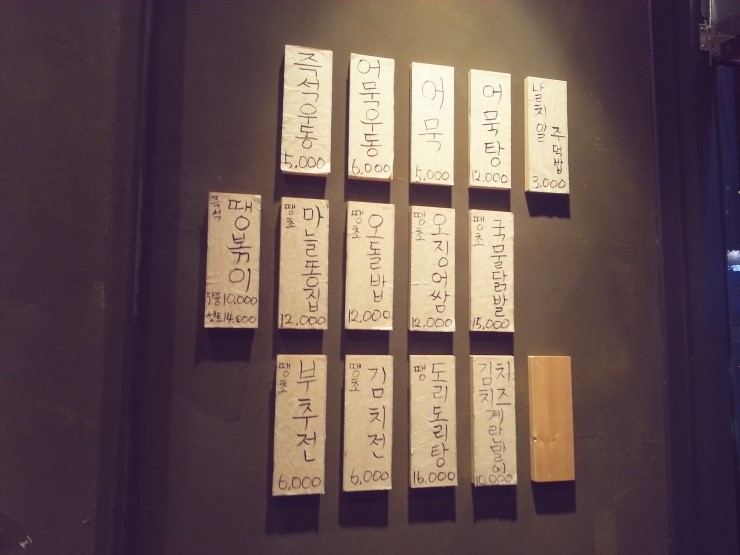 즉석우동
5,000
어묵우동
6,000
어묵
5,000
어묵탕
12,000
날치알
주먹밥
3,000
즉석
땡볶이
단품 10,000
세트 14,000
땡초
마늘똥집
12,000
땡초
오돌밥
12,000
땡초
오징어쌈
12,000
땡초
국물닭발
15,000
땡초
부추전
6,000
땡초
김치전
6,000
땡
도리도리탕
16,000
김치
치즈
계란말이
10,000